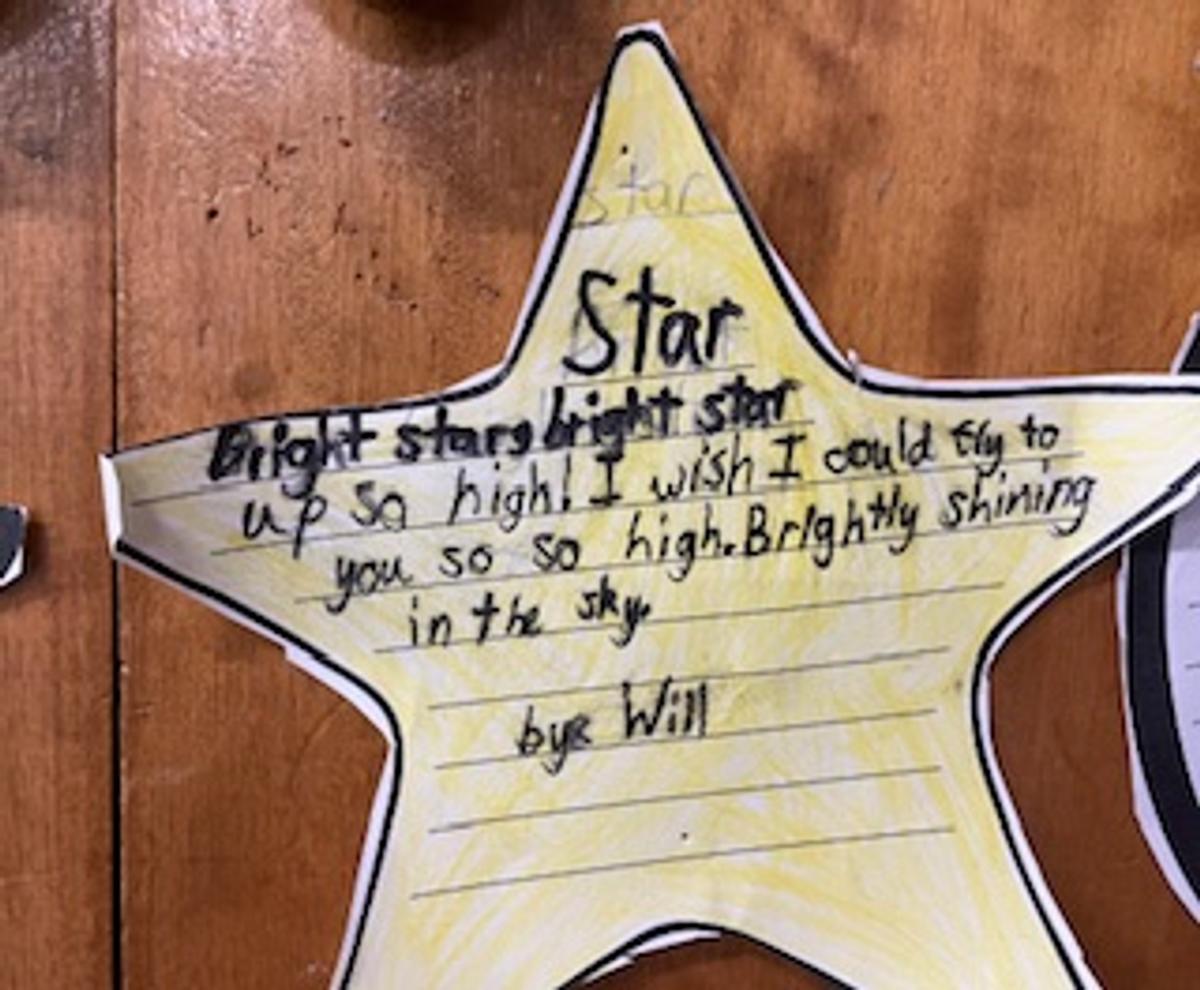 star
Star
Bright stars bright star
up so high! I wish I could fly to
you so so high. Brightly shining
in the sky.
bye Will